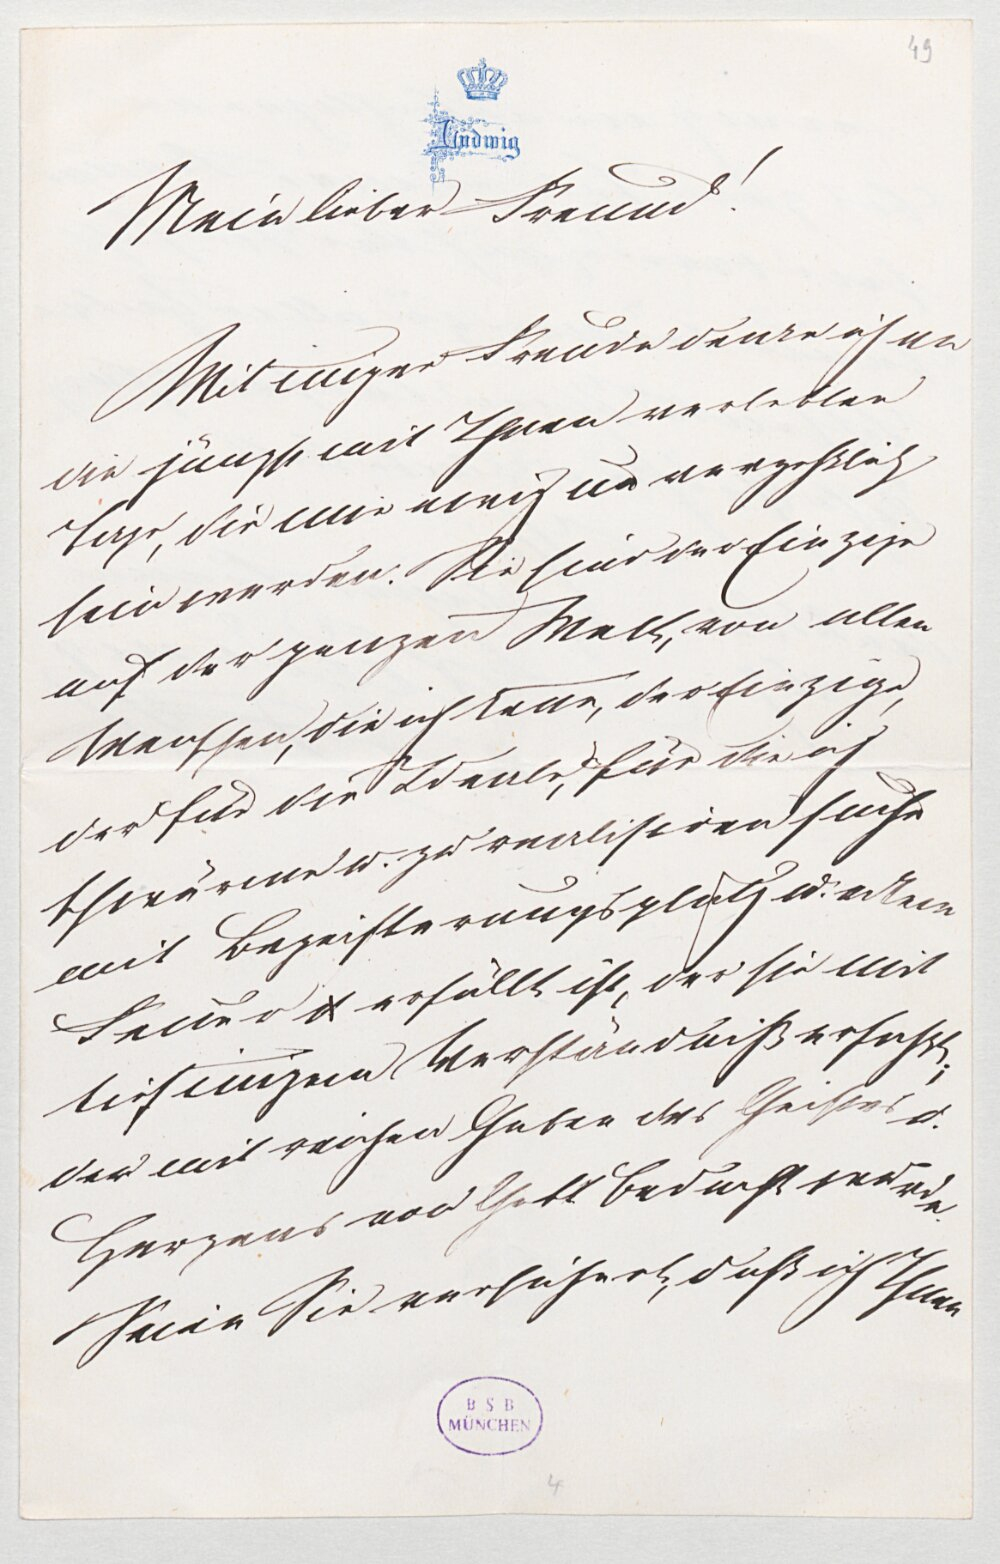 49
Ludwig
Mein lieber Freund!
Mit inniger Freude denke ich an
die jüngst mit Ihnen verlebten
Tage, die mir ewig unvergeßlich
sein werden. Sie sind der Einzige
auf der ganzen Welt, von allen
Menschen, die ich kenne, der Einzige,
der für die Ideale, für die ich
schwärme u. zu realisiren suche
mit Begeisterungsglut u. edlem
Feuer erfüllt ist, der sie mit
tiefinnigem Verständniß erfaßt,
der mit reichen Gaben des Geistes u.
Herzens von Gott bedacht wurde.
Seien Sie versichert, daß ich Ihnen
BSB
MÜNCHEN
4